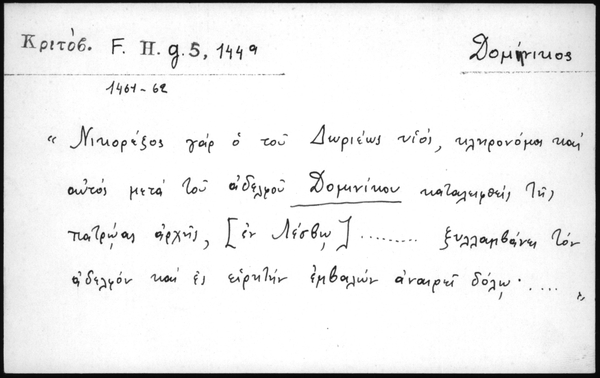 Κριτόβ. F. H. g. 5, 144α Δομίνικος
1461-62
« Νικορέζος γάρ ὁ τοῦ Δωριέως υἱός, κληρονόμος καί
αὐτός μετά τοῦ ἀδελφοῦ Δομινίκου καταλειφθείς τῆς
πατρῴας ἀρχῆς, [ἐν Λέσβῳ] ......... ξυλλαμβάνει τόν
ἀδελφόν καί ἐς εἱρκτήν ἐμβαλών ἀναιρεῖ δόλῳ· .... »